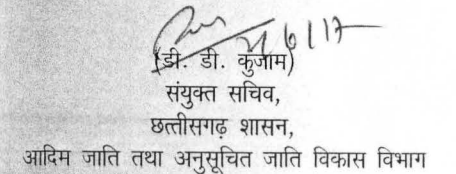 (डी. डी. कुंजाम)
संयुक्त सचिव,
छत्तीसगढ़ शासन,
आदिम जाति तथा अनुसूचित जाति विकास विभाग